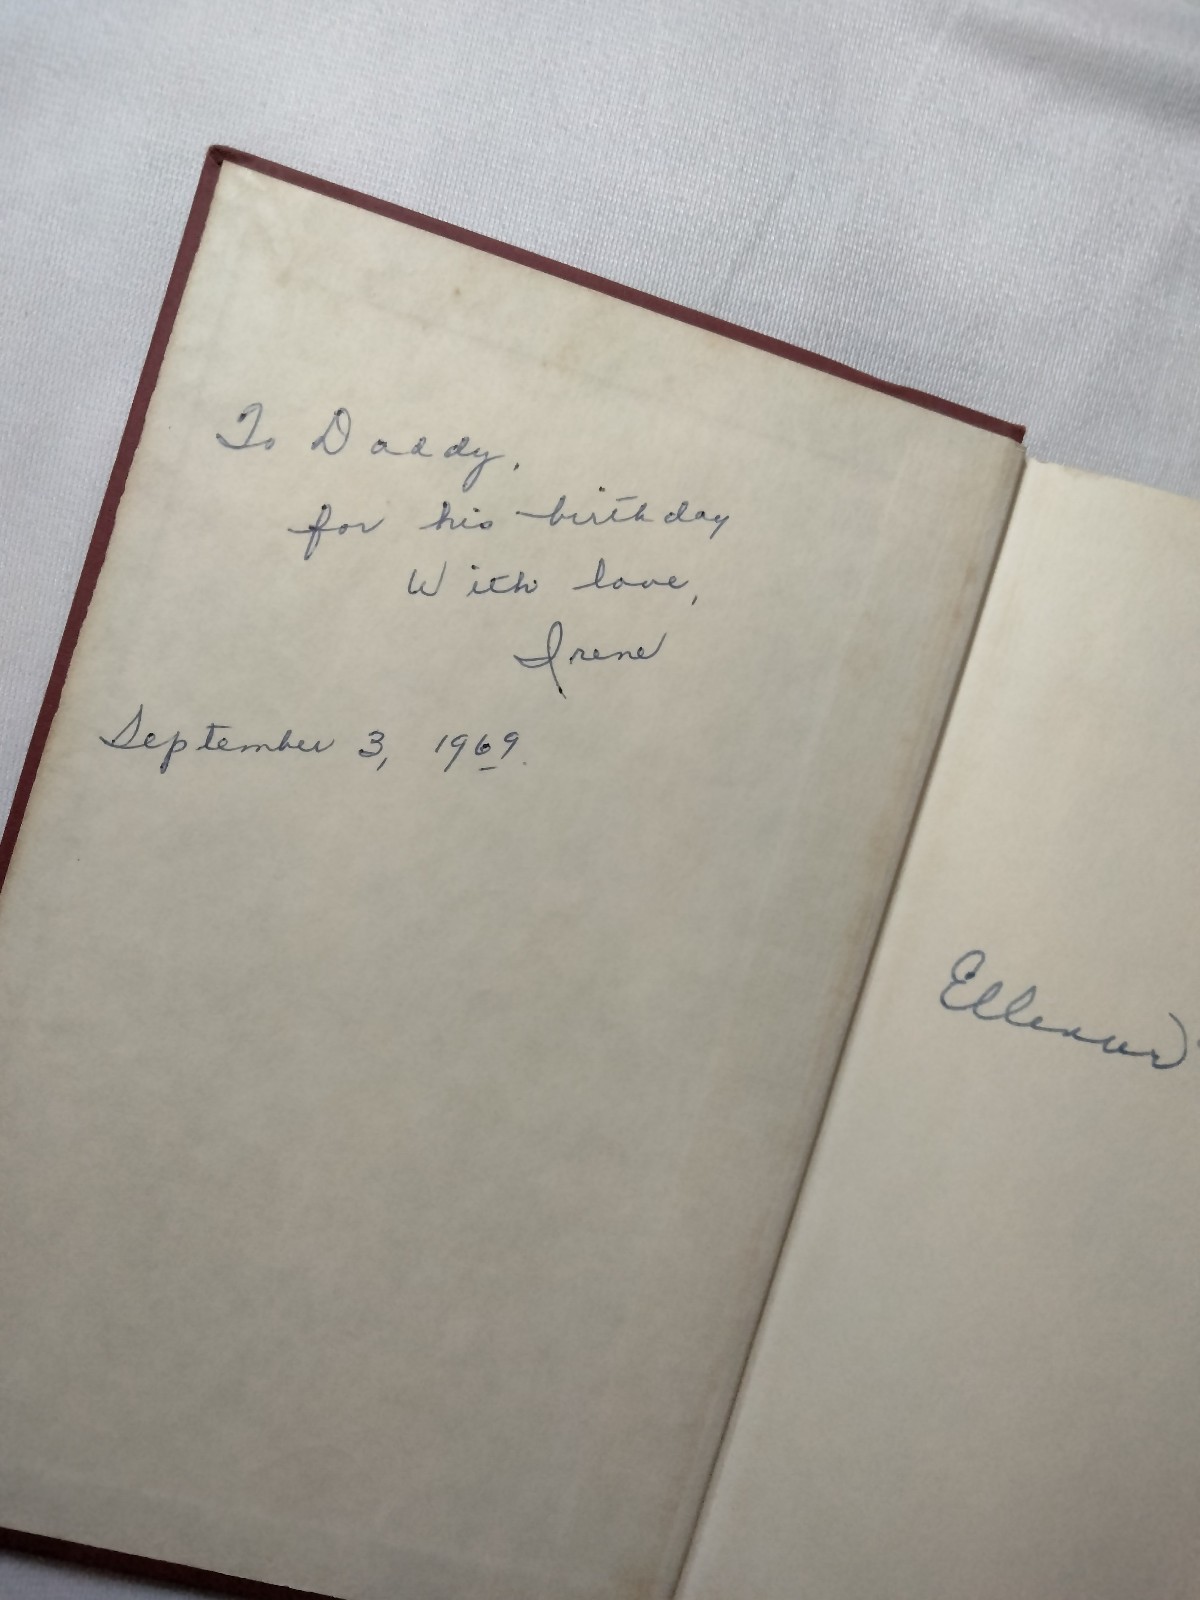 To Daddy,
for his birthday
With love,
Irene
September 3, 1969.